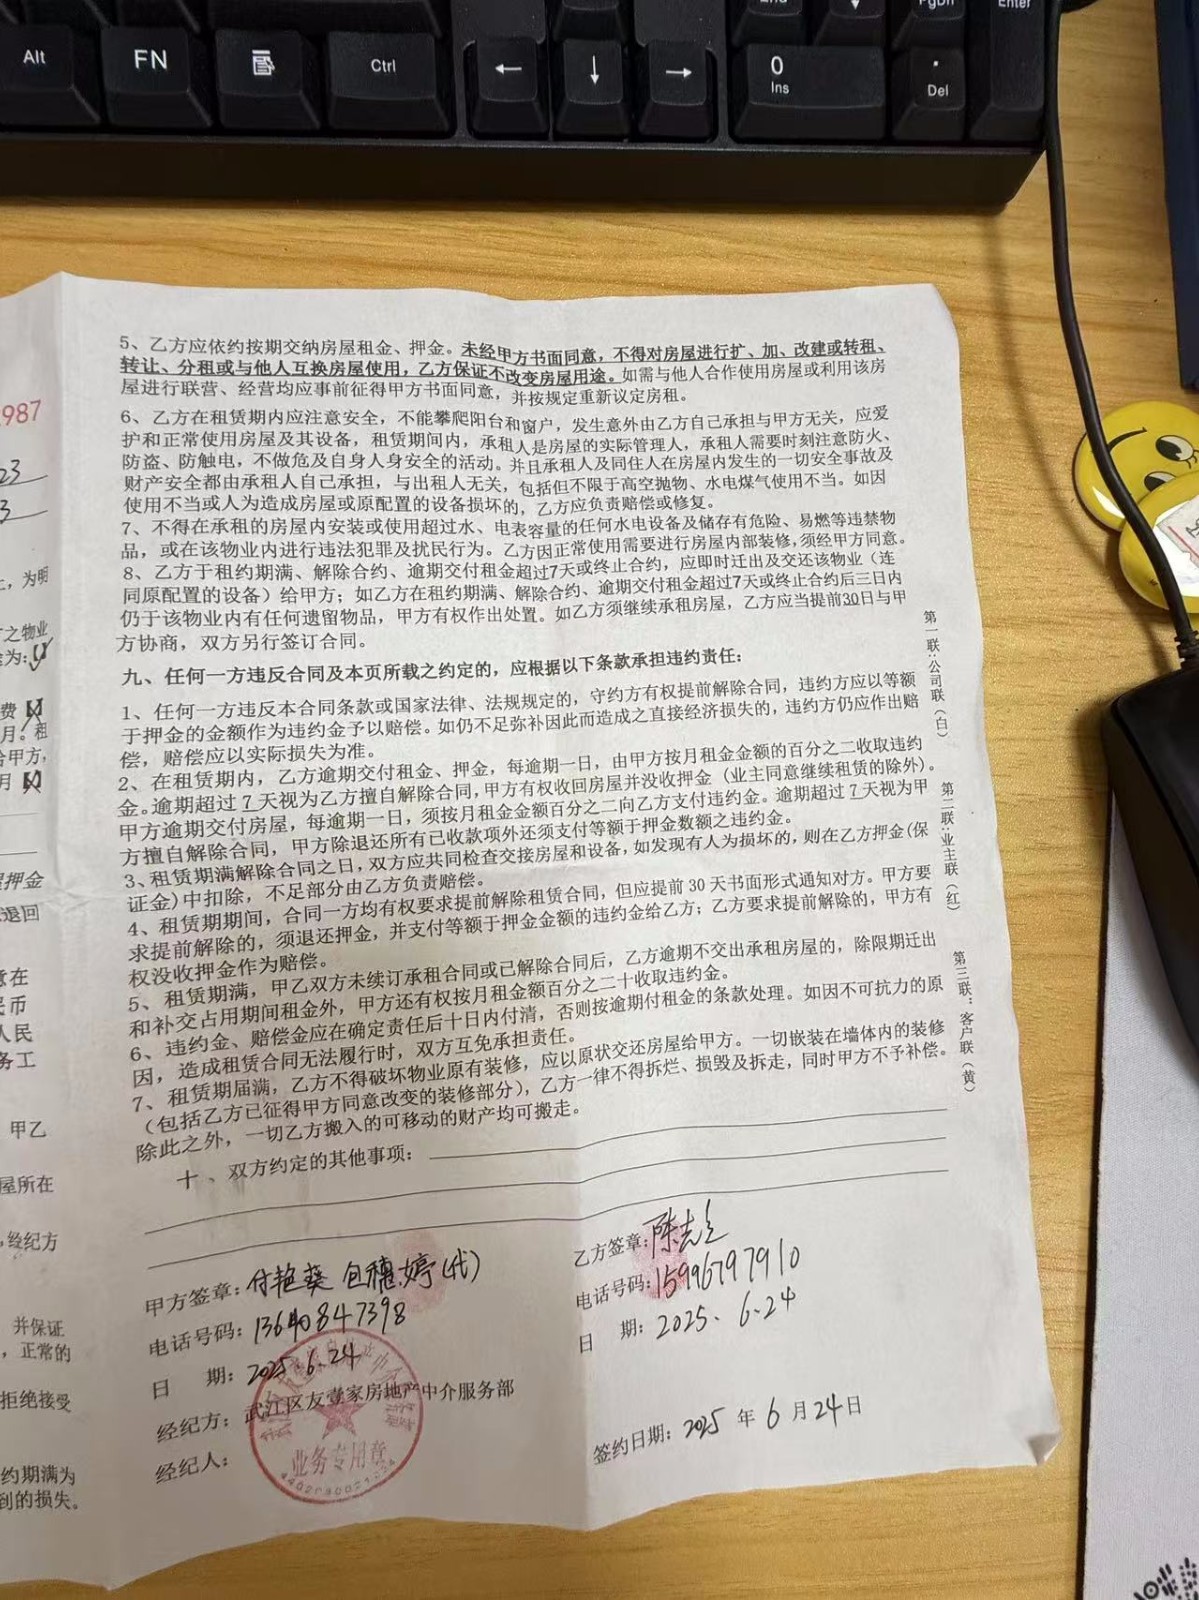 Alt
FN
Ctrl
←
↓
→
0
Ins
.
Del
End
PgDn
Enter
987
23
3
为明
之物业
为:
费
月。租
给甲方,
月
押金
退回
意在
民币
人民
务工
甲乙
屋所在
,经纪方
并保证
,正常的
拒绝接受
约期满为
到的损失。
5、乙方应依约按期交纳房屋租金、押金。未经甲方书面同意,不得对房屋进行扩、加、改建或转租、
转让、分租或与他人互换房屋使用,乙方保证不改变房屋用途。如需与他人合作使用房屋或利用该房
屋进行联营、经营均应事前征得甲方书面同意,并按规定重新议定房租。
6、乙方在租赁期内应注意安全,不能攀爬阳台和窗户,发生意外由乙方自己承担与甲方无关,应爱
护和正常使用房屋及其设备,租赁期间内,承租人是房屋的实际管理人,承租人需要时刻注意防火、
防盗、防触电,不做危及自身人身安全的活动。并且承租人及同住人在房屋内发生的一切安全事故及
财产安全都由承租人自己承担,与出租人无关,包括但不限于高空抛物、水电煤气使用不当。如因
使用不当或人为造成房屋或原配置的设备损坏的,乙方应负责赔偿或修复。
7、不得在承租的房屋内安装或使用超过水、电表容量的任何水电设备及储存有危险、易燃等违禁物
品,或在该物业内进行违法犯罪及扰民行为。乙方因正常使用需要进行房屋内部装修,须经甲方同意。
8、乙方于租约期满、解除合约、逾期交付租金超过7天或终止合约,应即时迁出及交还该物业(连
同原配置的设备)给甲方;如乙方在租约期满、解除合约、逾期交付租金超过7天或终止合约后三日内
仍于该物业内有任何遗留物品,甲方有权作出处置。如乙方须继续承租房屋,乙方应当提前30日与甲
方协商,双方另行签订合同。
九、任何一方违反合同及本页所载之约定的,应根据以下条款承担违约责任:
1、任何一方违反本合同条款或国家法律、法规规定的,守约方有权提前解除合同,违约方应以等额
于押金的金额作为违约金予以赔偿。如仍不足弥补因此而造成之直接经济损失的,违约方仍应作出赔
偿,赔偿应以实际损失为准。
2、在租赁期内,乙方逾期交付租金、押金,每逾期一日,由甲方按月租金金额的百分之二收取违约
金。逾期超过 7 天视为乙方擅自解除合同,甲方有权收回房屋并没收押金(业主同意继续租赁的除外)。
甲方逾期交付房屋,每逾期一日,须按月租金金额百分之二向乙方支付违约金。逾期超过 7 天视为甲
方擅自解除合同,甲方除退还所有已收款项外还须支付等额于押金数额之违约金。
3、租赁期满解除合同之日,双方应共同检查交接房屋和设备,如发现有人为损坏的,则在乙方押金(保
证金)中扣除,不足部分由乙方负责赔偿。
4、租赁期期间,合同一方均有权要求提前解除租赁合同,但应提前 30 天书面形式通知对方。甲方要
求提前解除的,须退还押金,并支付等额于押金金额的违约金给乙方;乙方要求提前解除的,甲方有
权没收押金作为赔偿。
5、租赁期满,甲乙双方未续订承租合同或已解除合同后,乙方逾期不交出承租房屋的,除限期迁出
和补交占用期间租金外,甲方还有权按月租金额百分之二十收取违约金。
6、违约金、赔偿金应在确定责任后十日内付清,否则按逾期付租金的条款处理。如因不可抗力的原
因,造成租赁合同无法履行时,双方互免承担责任。
7、租赁期届满,乙方不得破坏物业原有装修,应以原状交还房屋给甲方。一切嵌装在墙体内的装修
(包括乙方已征得甲方同意改变的装修部分),乙方一律不得拆烂、损毁及拆走,同时甲方不予补偿。
除此之外,一切乙方搬入的可移动的财产均可搬走。
十、双方约定的其他事项:
第一联:公司联(白)
第二联:业主联(红)
第三联:客户联(黄)
甲方签章:付艳葵 包穗婷(代)
电话号码:13640847398
日 期:2025.6.24
经纪方:武江区友壹家房地产中介服务部
经纪人:
业务专用章
乙方签章:陈志
电话号码:15996797910
日 期:2025.6.24
签约日期:2025 年 6 月 24 日